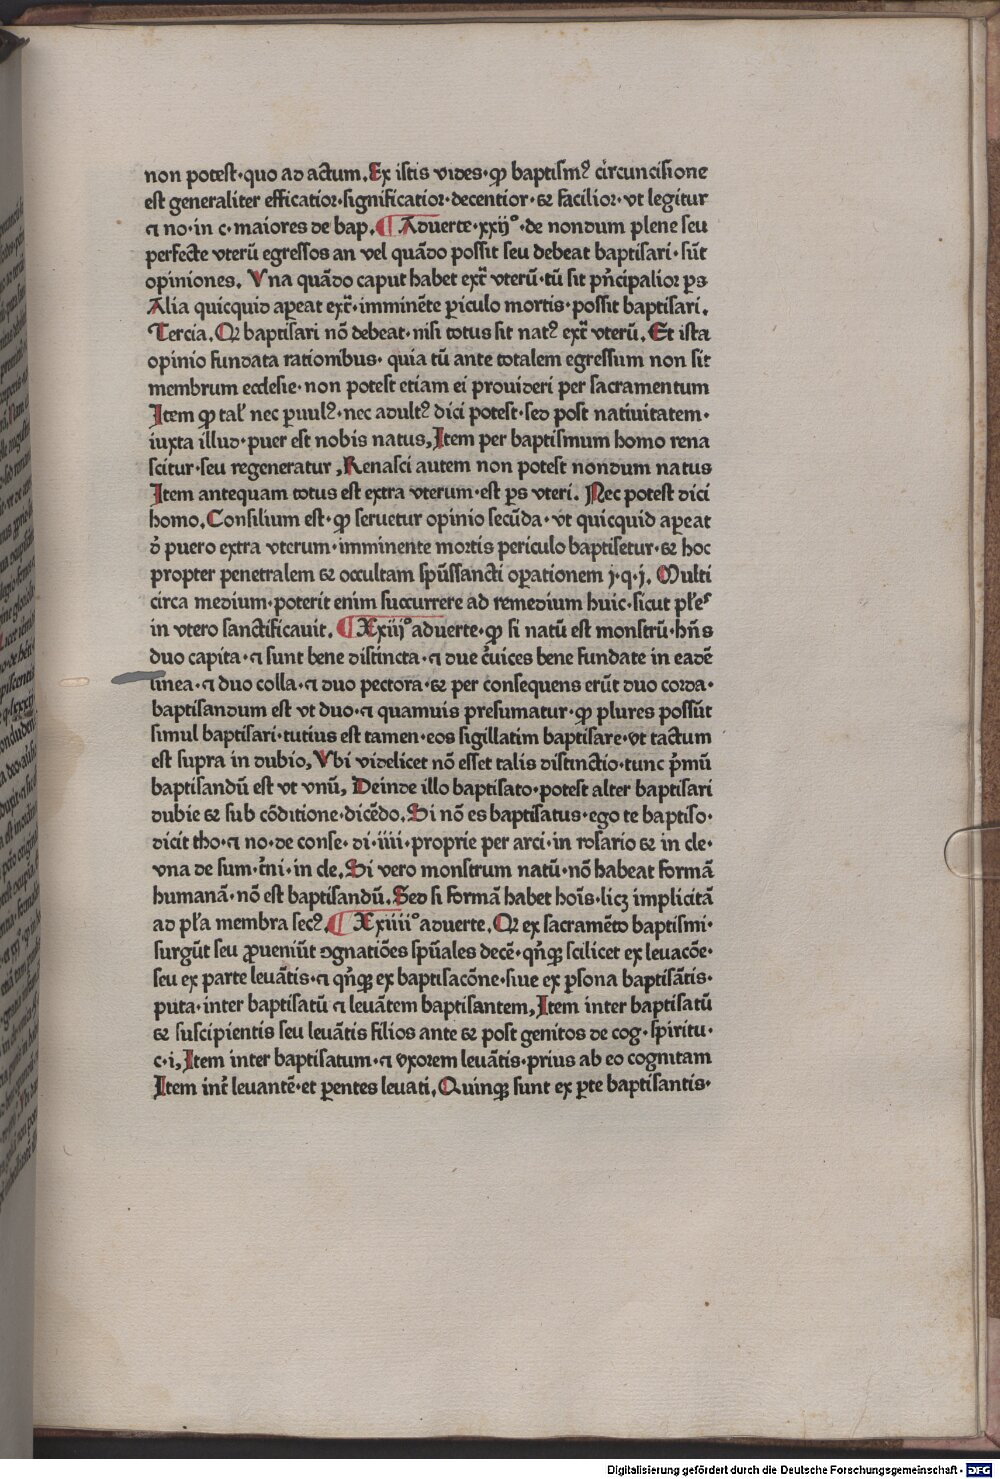 non potest·quo ad actum. Ex istis vides·ꝙ baptismꝰ circuncisione
est generaliter efficatior·significatior·decentior·⁊ facilior·vt legitur
⁊ no·in c·maiores de bap. ¶ Aduerte·xxijº·de nondum plene seu
perfecte vterū egressos an vel quādo possit seu debeat baptisari·sūt
opiniones. Vna quādo caput habet ext̄ vterū·tū sit pn̄cipalior ps
Alia quicquid aꝑeat ext̄·imminēte ꝑiculo mortis·possit baptisari.
Tercia. Qr baptisari nō debeat·nisi totus sit natꝰ ext̄ vterū. Et ista
opinio fundata rationibus·quia tū ante totalem egressum non sit
membrum ecclesie·non potest etiam ei prouideri per sacramentum
Item ꝙ tal' nec ꝑuulꝰ·nec adultꝰ dici potest·sed post natiuitatem·
iuxta illud·puer est nobis natus, Item per baptismum homo rena
scitur·seu regeneratur, Renasci autem non potest nondum natus
Item antequam totus est extra vterum·est ps vteri. Nec potest dici
homo. Consilium est·ꝙ seruetur opinio secūda·vt quicquid aꝑeat
d' puero extra vterum·imminente mortis periculo baptisetur·⁊ hoc
propter penetralem ⁊ occultam spūssancti oꝑationem j·q·j. Multi
circa medium·poterit enim succurrere ad remedium huic·sicut pl'eʳ
in vtero sanctificauit. ¶ Xxiijº aduerte·ꝙ si natū est monstrū·hn̄s
duo capita·⁊ sunt bene distincta·⁊ due c̄uices bene fundate in eadē
linea·⁊ duo colla·⁊ duo pectora·⁊ per consequens erūt duo corda·
baptisandum est vt duo·⁊ quamuis presumatur·ꝙ plures possūt
simul baptisari·tutius est tamen·eos sigillatim baptisare·vt tactum
est supra in dubio, Vbi videlicet nō esset talis distinctio·tunc p̄mū
baptisandū est vt vnū, Deinde illo baptisato·potest alter baptisari
dubie ⁊ sub cōditione·dicēdo. Si nō es baptisatus·ego te baptiso·
dicit tho·⁊ no·de conse·di·iiii·proprie per arci·in rosario ⁊ in cle·
vna de sum·t̄ni·in cle. Si vero monstrum natū·nō habeat formā
humanā·nō est baptisandū. Sed si formā habet hoīs·licꝫ implicitā
ad pl'a membra secꝰ. ¶ Xxiiiiº aduerte. Qr ex sacramēto baptismi·
surgūt seu ꝓueniūt ꝯgnatiōes spūales decē·qn̄qꝫ scilicet ex leuacōe·
seu ex parte leuātis·⁊ qn̄qꝫ ex baptisacōne·siue ex ꝑsona baptisātis·
puta·inter baptisatū ⁊ leuātem baptisantem, Item inter baptisatū
⁊ suscipientis seu leuātis filios ante ⁊ post genitos de cog·spiritu·
c·i, Item inter baptisatum·⁊ vxorem leuātis·prius ab eo cognitam
Item int̄ leuantē·et ꝑentes leuati. Quinqꝫ sunt ex ꝑte baptisantis·
Digitalisierung gefördert durch die Deutsche Forschungsgemeinschaft - DFG